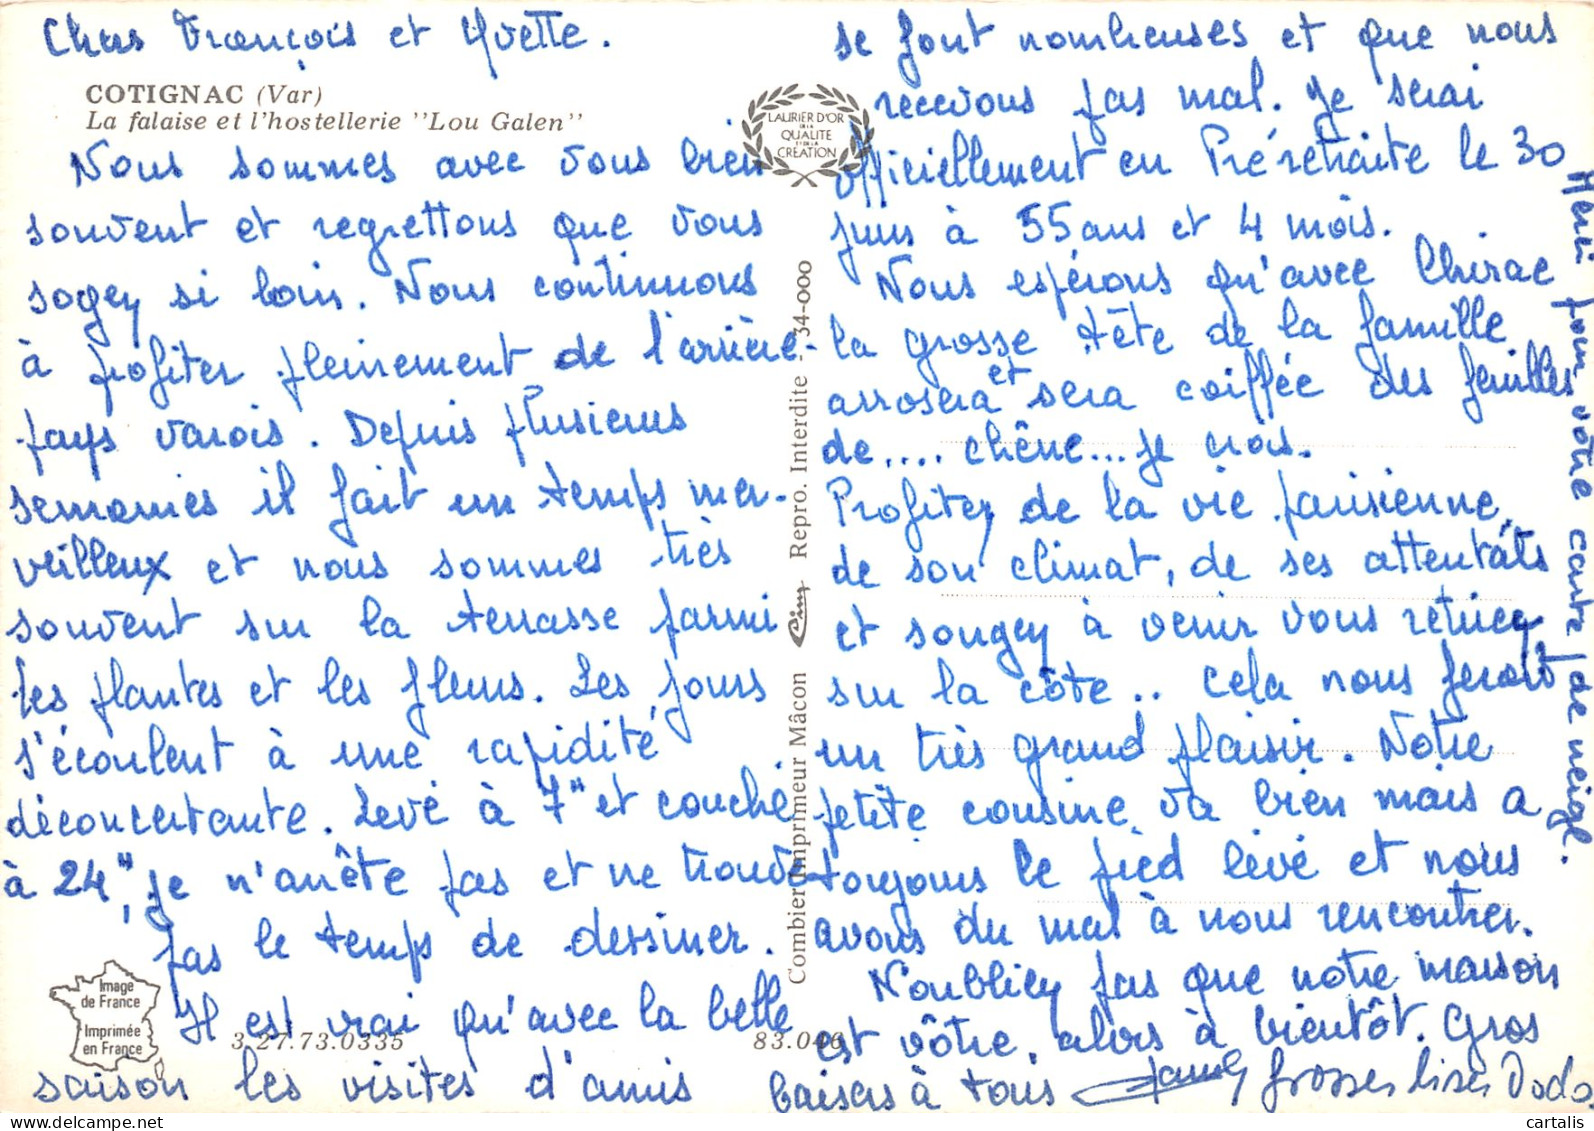 Chers François et Yvette.
COTIGNAC (Var)
La falaise et l'hostellerie "Lou Galen"
Nous sommes avec vous bien
souvent et regrettons que vous
soyez si loin. Nous continuons
à profiter pleinement de l'arrière-
pays varois. Depuis plusieurs
semaines il fait un temps mer-
veilleux et nous sommes très
souvent sur la terrasse parmi
les plantes et les fleurs. Les jours
s'écoulent à une rapidité
déconcertante. Levé à 7" et couché
à 24", je n'arrête pas et ne trouve
pas le temps de dessiner.
Il est vrai qu'avec la belle
saison les visites d'amis
Image
de France
Imprimée
en France
3.27.73.0335
83.046
LAURIER D'OR
DE LA
QUALITE
ET DE LA
CRÉATION
Combier Imprimeur Mâcon Cim Repro. Interdite - 34-000
se font nombreuses et que nous
recevons pas mal. Je serai
officiellement en Préretraite le 30
juin à 55 ans et 4 mois.
Nous espérons qu'avec Chirac
la grosse tête de la famille
arrosera et sera coiffée des feuilles
de.... chêne... je crois.
Profitez de la vie parisienne,
de son climat, de ses attentats
et songez à venir vous retirer
sur la côte.. Cela nous ferait
un très grand plaisir. Notre
petite cousine va bien mais a
toujours le pied levé et nous
avons du mal à nous rencontrer.
N'oubliez pas que notre maison
est vôtre, alors à bientôt. Gros
baisers à tous grosses bises Dodo
Merci pour votre carte / de neige.
cartalis